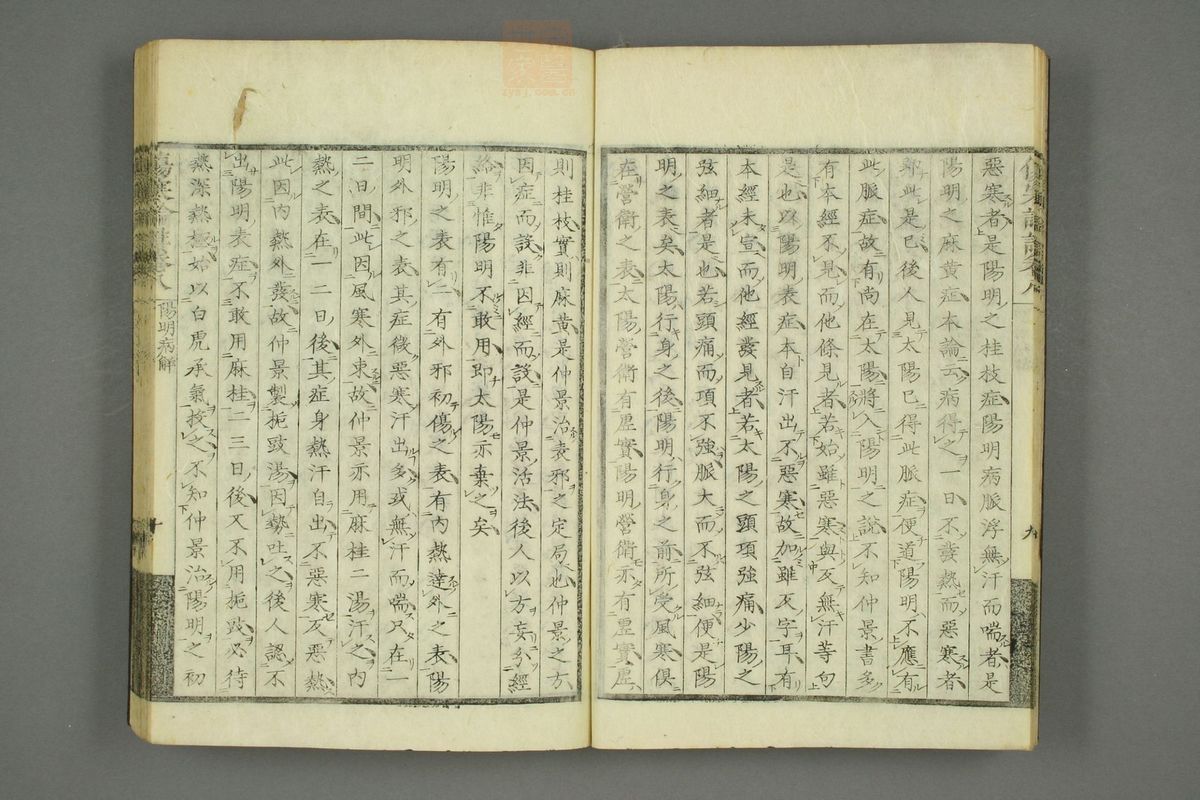 惡寒者是陽明之桂枝症陽明病脈浮無汗而喘者是
陽明之麻黄症本論云病得之一日不發熱而惡寒者
即此是已後人見太陽已得此脈症便道陽明不應有
此脈症故有尚在太陽將入陽明之説不知仲景書多
有本經不見而他條見者若始雖惡寒與反無汗等句
是也以陽明表症本自汗出不惡寒故加雖反字耳有
本經未宣而他經發見者若太陽之頭項強痛少陽之
弦細者是也若頭痛而項不強脈大而不弦細便是陽
明之表矣太陽行身之後陽明行身之前所受風寒俱
在營衛之表太陽營衛有虚實陽明營衛亦有虚實虚
九
則桂枝實則麻黄是仲景治表邪之定局也仲景之方
因症而設非因經而設是仲景活法後人以方妄分經
絡非惟陽明不敢用即太陽亦棄之矣
陽明之表有二有外邪初傷之表有内熱達外之表陽
明外邪之表其症微惡寒汗出多或無汗而喘只在一
二日間此因風寒外束故仲景亦用麻桂二湯汗之内
熱之表在一二日後其症身熱汗自出不惡寒反惡熱
此因内熱外發故仲景製梔豉湯因勢吐之後人認不
出陽明表症不敢用麻桂二三日後又不用梔豉必待
熱深熱極始以白虎承氣投之不知仲景治陽明之初
陽明病解
十